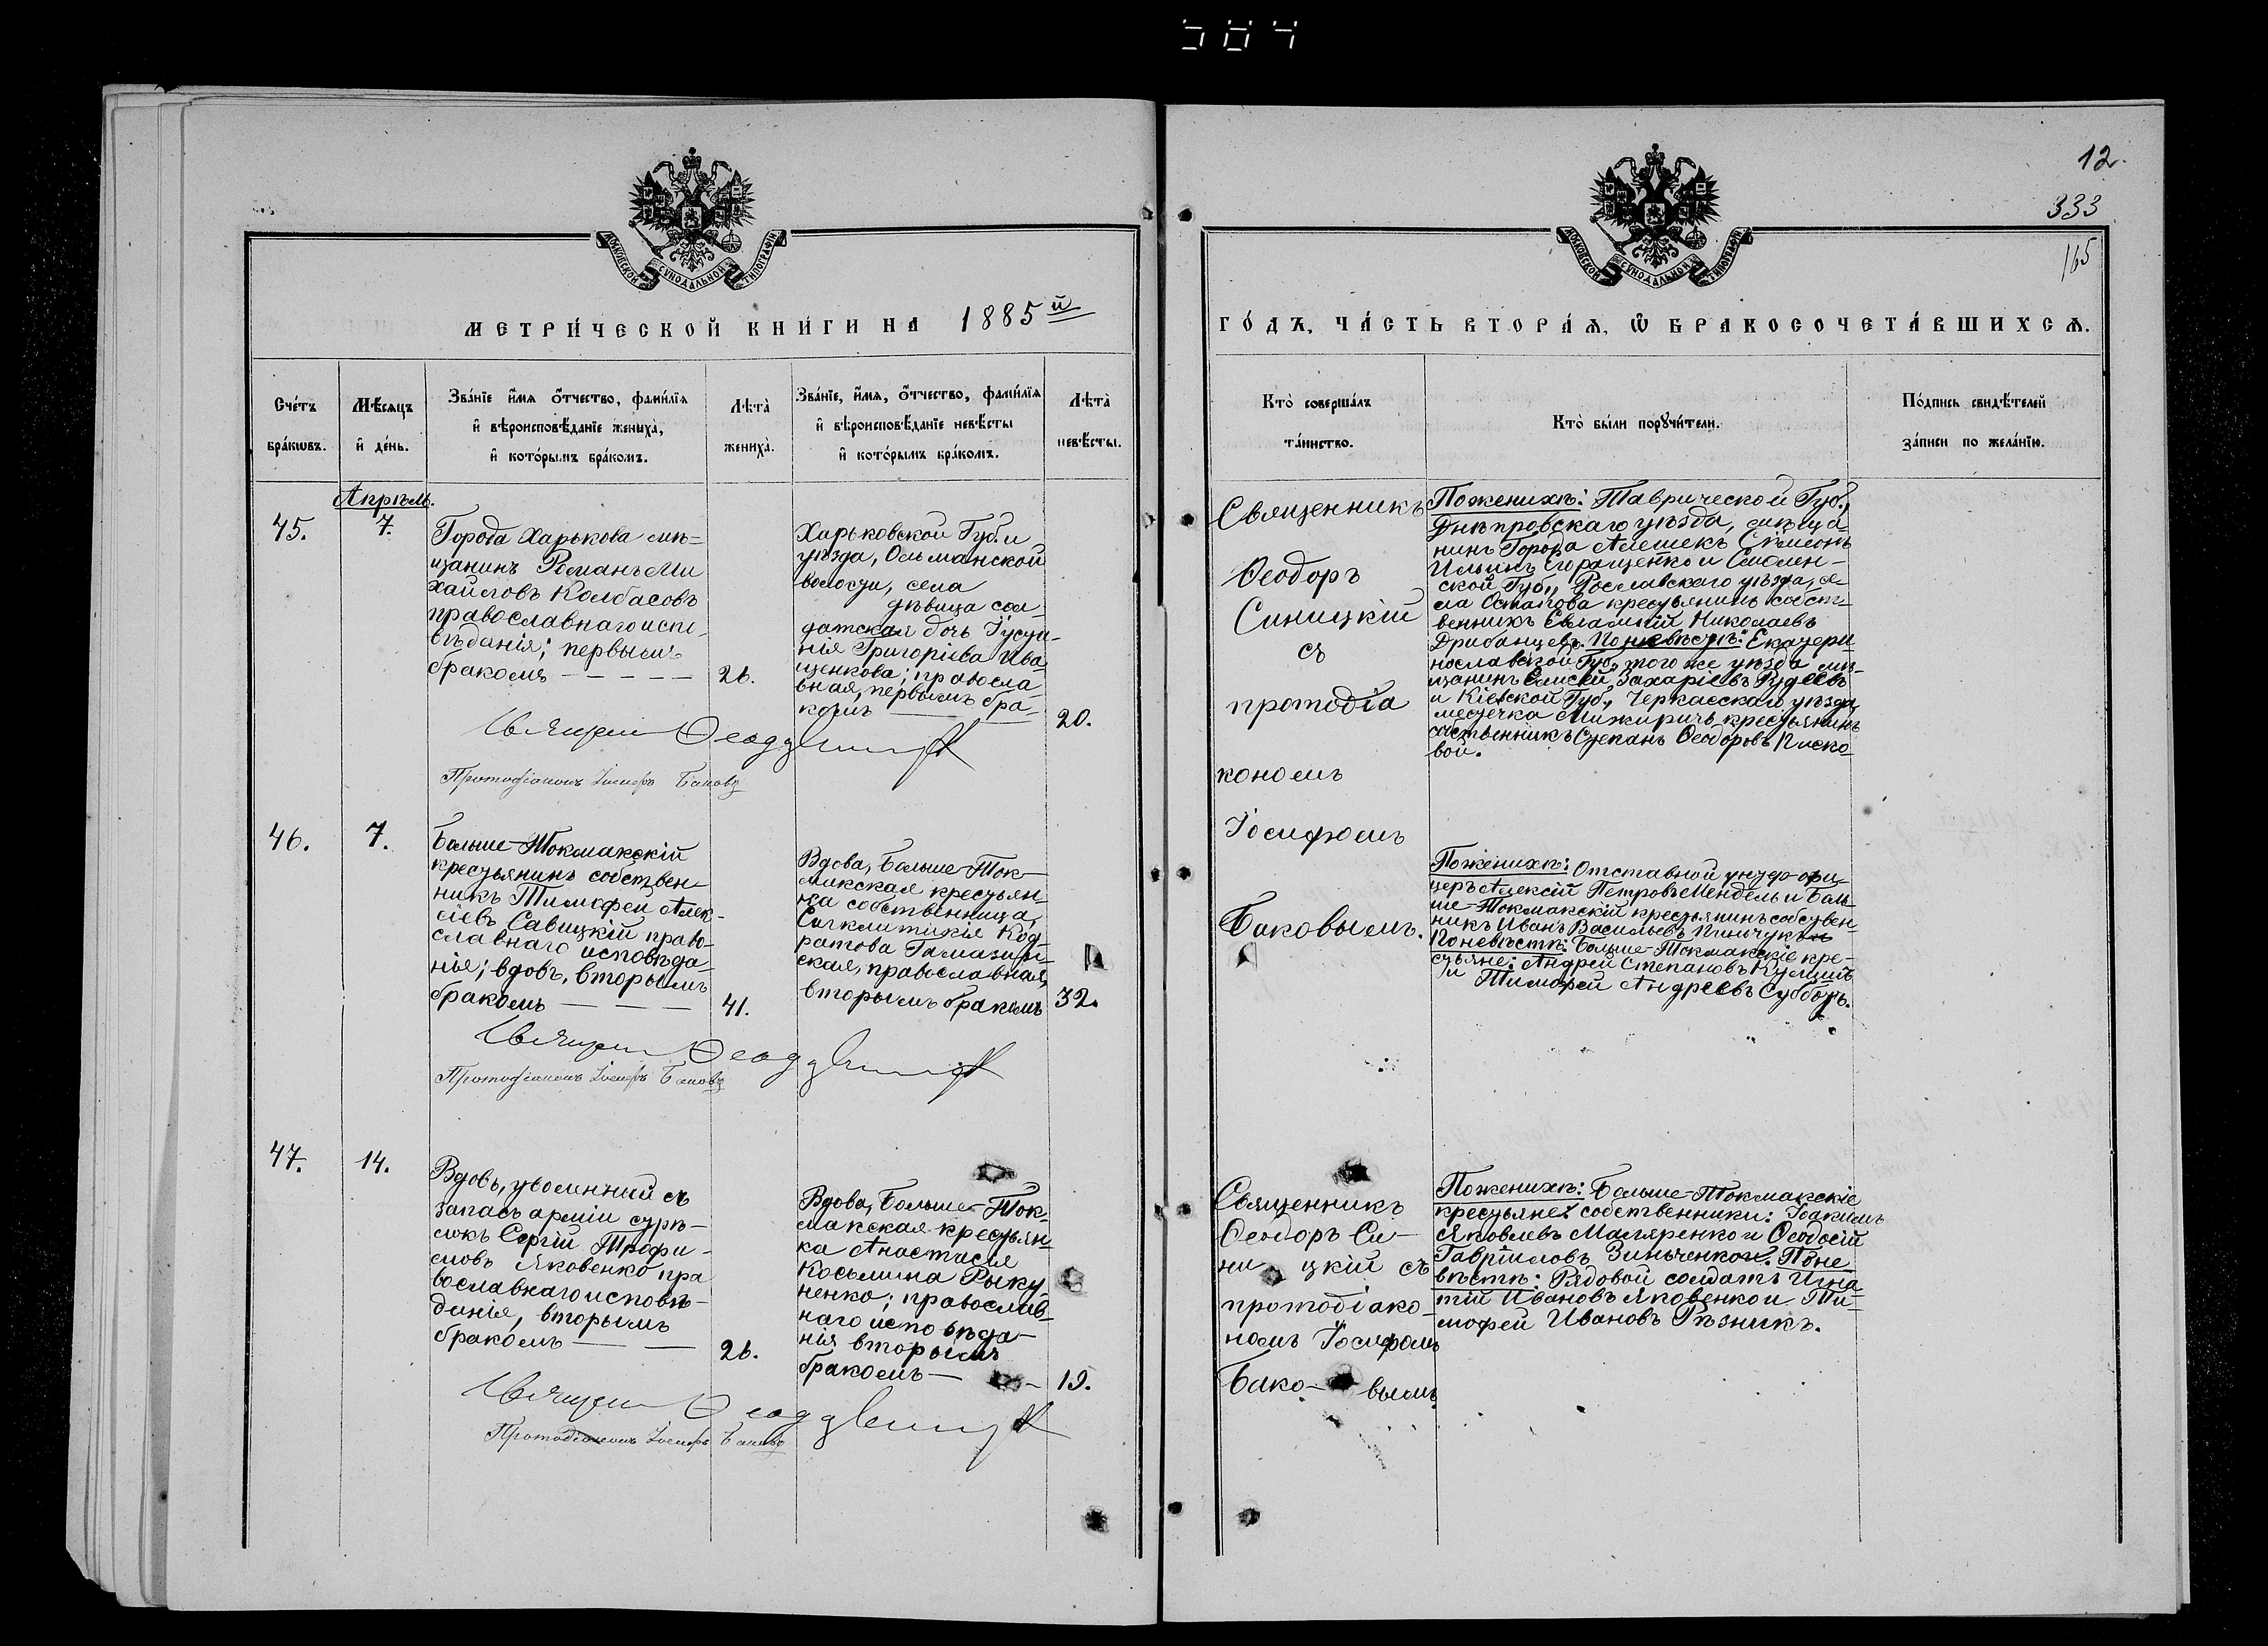 584
12.
333
165
МОСКОВСКОЙ СУНОДАЛЬНОЙ ТИПОГРАФІИ
МОСКОВСКОЙ СУНОДАЛЬНОЙ ТИПОГРАФІИ
МЕТРИ́ЧЕСКОЙ КНИ́ГИ НА 1885й
ГО́ДЪ, ЧА́СТЬ ВТОРА́Ѧ, Ѡ БРАКОСОЧЕТА́ВШИХСѦ.
Сче́тъ
бра́кωвъ.
Мѣ́сяцъ
и҆ де́нь.
Зва́нїе и҆́мѧ ѻ҆́тчество, фами́лїѧ
и҆ вѣроисповѣ́данїе жениха̀,
и҆ кото́рымъ бра́комъ.
Лѣта̀
жениха̀.
Зва́нїе, и҆́мѧ, ѻ҆́тчество, фами́лїѧ
и҆ вѣроисповѣ́данїе невѣ́сты
и҆ кото́рымъ бра́комъ.
Лѣта̀
невѣ́сты.
Кто̀ соверша́лъ
та́инство.
Кто̀ бы́ли порꙋчи́тели.
По́дпись свидѣ́телей
за́писи по жела́нїю.
Апрѣль.
45.
7.
Города Харькова мѣ-
щанинъ Романъ Ми
хайловъ Колбасовъ
православнаго испо-
вѣданія; первымъ
бракомъ
26.
Харьковской Губ. и
уѣзда, Ольшанской
волости, села
дѣвица сол
датская дочь Іусти-
нія Григоріева Ива
щенкова; правосла
вная, первымъ бра-
комъ
20.
Священникъ
Ѳеодоръ
Синицкій
съ
протодіа
кономъ
Іосифомъ
Баковымъ.
По женихѣ: Таврической Губ.,
Днѣпровскаго уѣзда, мѣща
нинъ Города Алешекъ Сѵмеонъ
Ильинъ Горащенко и Смолен-
ской Губ., Рославскаго уѣзда, се-
ла Остапова крестьянинъ собст-
венникъ Евлампій Николаевъ
Дрибанцевъ. По невѣстѣ: Екатери
нославской Губ, того же уѣзда мѣ-
щанинъ Елисей Захаріевъ Рудевъ
и Кіевской Губ., Черкасскаго уѣзда,
местечка Мижиричъ крестьянинъ
собственникъ Степанъ Ѳеодоровъ Писко-
вой.
Протодіаконъ Іосифъ Баковъ
46.
7.
Больше-Токмакскій
крестьянинъ собствен-
никъ Тимофей Алек-
сіевъ Савицкій право-
славнаго исповѣда-
нія; вдовъ, вторымъ
бракомъ
41.
Вдова, Больше-Ток-
макская крестьян-
ка собственница
Сигклитикія Код-
ратова Гамазин-
ская, православная,
вторымъ бракомъ
32.
По женихѣ: Отставной унтер-офи-
церъ Алексій Петровъ Мендель и Боль-
ше-Токмакскій крестьянинъ собствен-
никъ Иванъ Васильевъ Пинчукъ
По невѣстѣ: Больше-Токмакскіе кре-
стьяне: Андрей Степановъ Кулишъ
и Тимофей Андреевъ Субботъ.
Протодіаконъ Іосифъ Баковъ
47.
14.
Вдовъ, уволенный съ
запасъ арміи стрѣ-
локъ Сергій Трофи-
мовъ Яковенко пра
вославнаго исповѣ-
данія, вторымъ
бракомъ
26.
Вдова, Больше-Ток-
макская крестьян-
ка Анастасія
Косьмина Рыку-
ненко; православ-
наго исповѣда-
нія вторымъ
бракомъ
19.
Священникъ
Ѳеодоръ Си-
ницкій съ
протодіако-
номъ Іосифомъ
Бако-вымъ
По женихѣ: Больше-Токмакскіе
крестьяне собственники: Іоакимъ
Яковлевъ Магляренко и Ѳеодосій
Гавріиловъ Зинченко. По не-
вѣстѣ: Рядовой солдатъ Игна
тій Ивановъ Яковенко и Ти-
мофей Ивановъ Рѣзникъ.
Протодіаконъ Іосифъ Баковъ